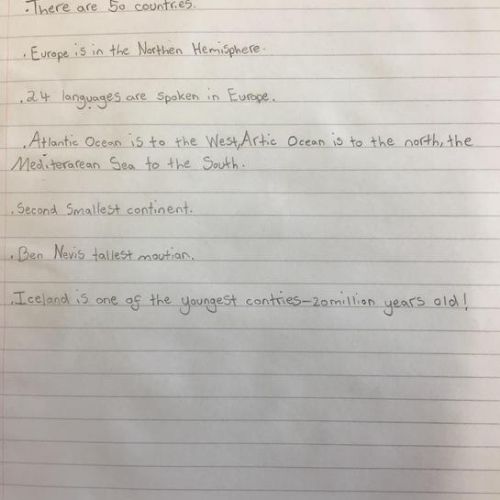 .There are 50 countries.
.Europe is in the Northen Hemisphere.
.24 languages are spoken in Europe.
.Atlantic Ocean is to the West,Artic Ocean is to the north, the
Mediterarean Sea to the South.
.Second Smallest continent.
.Ben Nevis tallest moutian.
.Iceland is one of the youngest contries-20million years old!